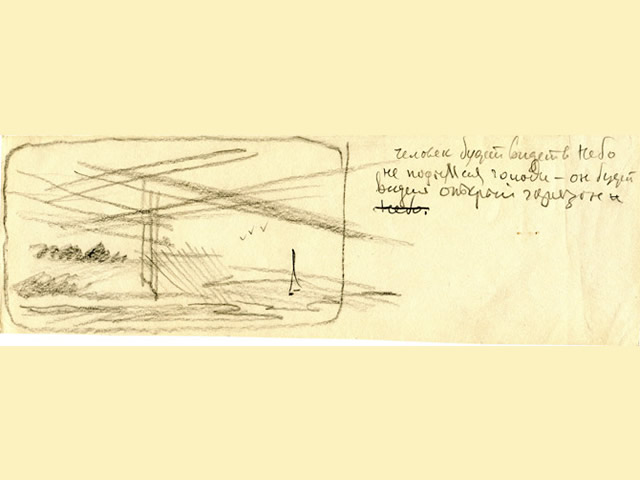 человек будет видеть небо
не поднимая головы – он будет
видеть открытый горизонт и
небо.